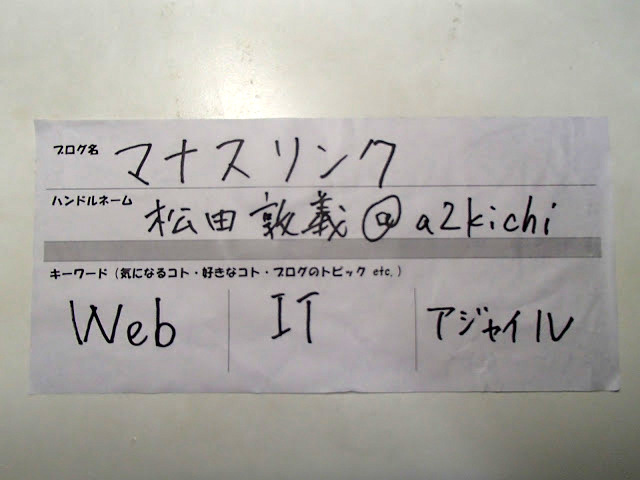 ブログ名 マナスリンク
ハンドルネーム 松田敦義@a2kichi
キーワード（気になるコト・好きなコト・ブログのトピック etc.）
Web IT アジャイル